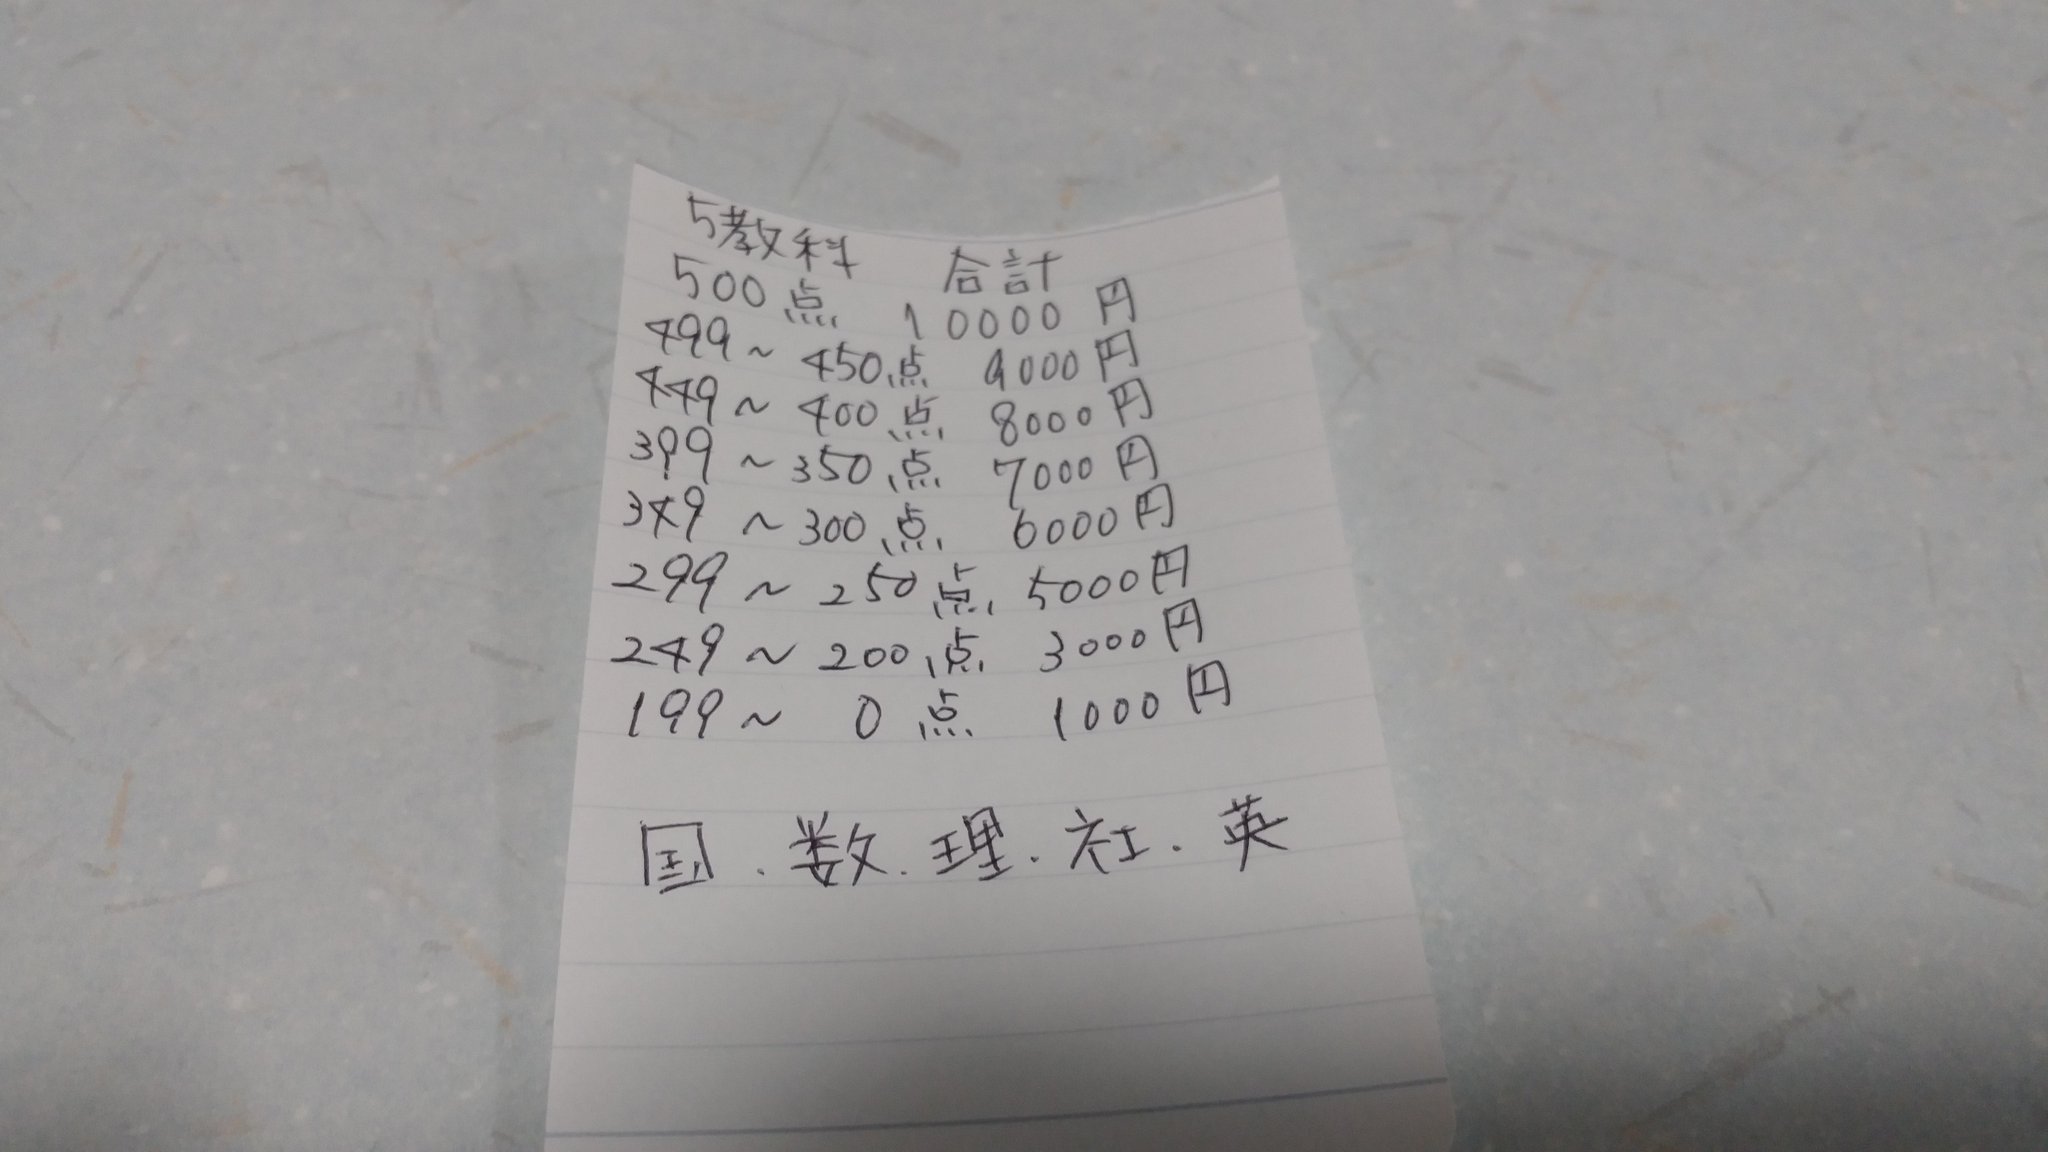 5教科 合計
500点 10000円
499～450点 9000円
449～400点 8000円
399～350点 7000円
349～300点 6000円
299～250点 5000円
249～200点 3000円
199～ 0点 1000円
国.数.理.社.英